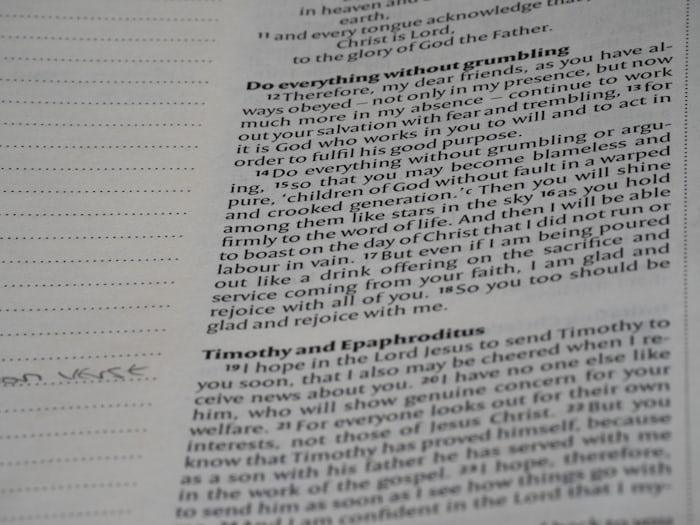 in heaven and
earth,
11 and every tongue acknowledge that
Christ is Lord,
to the glory of God the Father.
Do everything without grumbling
12 Therefore, my dear friends, as you have al-
ways obeyed – not only in my presence, but now
much more in my absence – continue to work
out your salvation with fear and trembling, 13 for
it is God who works in you to will and to act in
order to fulfil his good purpose.
14 Do everything without grumbling or argu-
ing, 15 so that you may become blameless and
pure, ‘children of God without fault in a warped
and crooked generation.’c Then you will shine
among them like stars in the sky 16 as you hold
firmly to the word of life. And then I will be able
to boast on the day of Christ that I did not run or
labour in vain. 17 But even if I am being poured
out like a drink offering on the sacrifice and
service coming from your faith, I am glad and
rejoice with all of you. 18 So you too should be
glad and rejoice with me.
Timothy and Epaphroditus
19 I hope in the Lord Jesus to send Timothy to
you soon, that I also may be cheered when I re-
ceive news about you. 20 I have no one else like
him, who will show genuine concern for your
welfare. 21 For everyone looks out for their own
interests, not those of Jesus Christ. 22 But you
know that Timothy has proved himself, because
as a son with his father he has served with me
in the work of the gospel. 23 I hope, therefore,
to send him as soon as I see how things go with
I am confident in the Lord that I my-
on VERSE